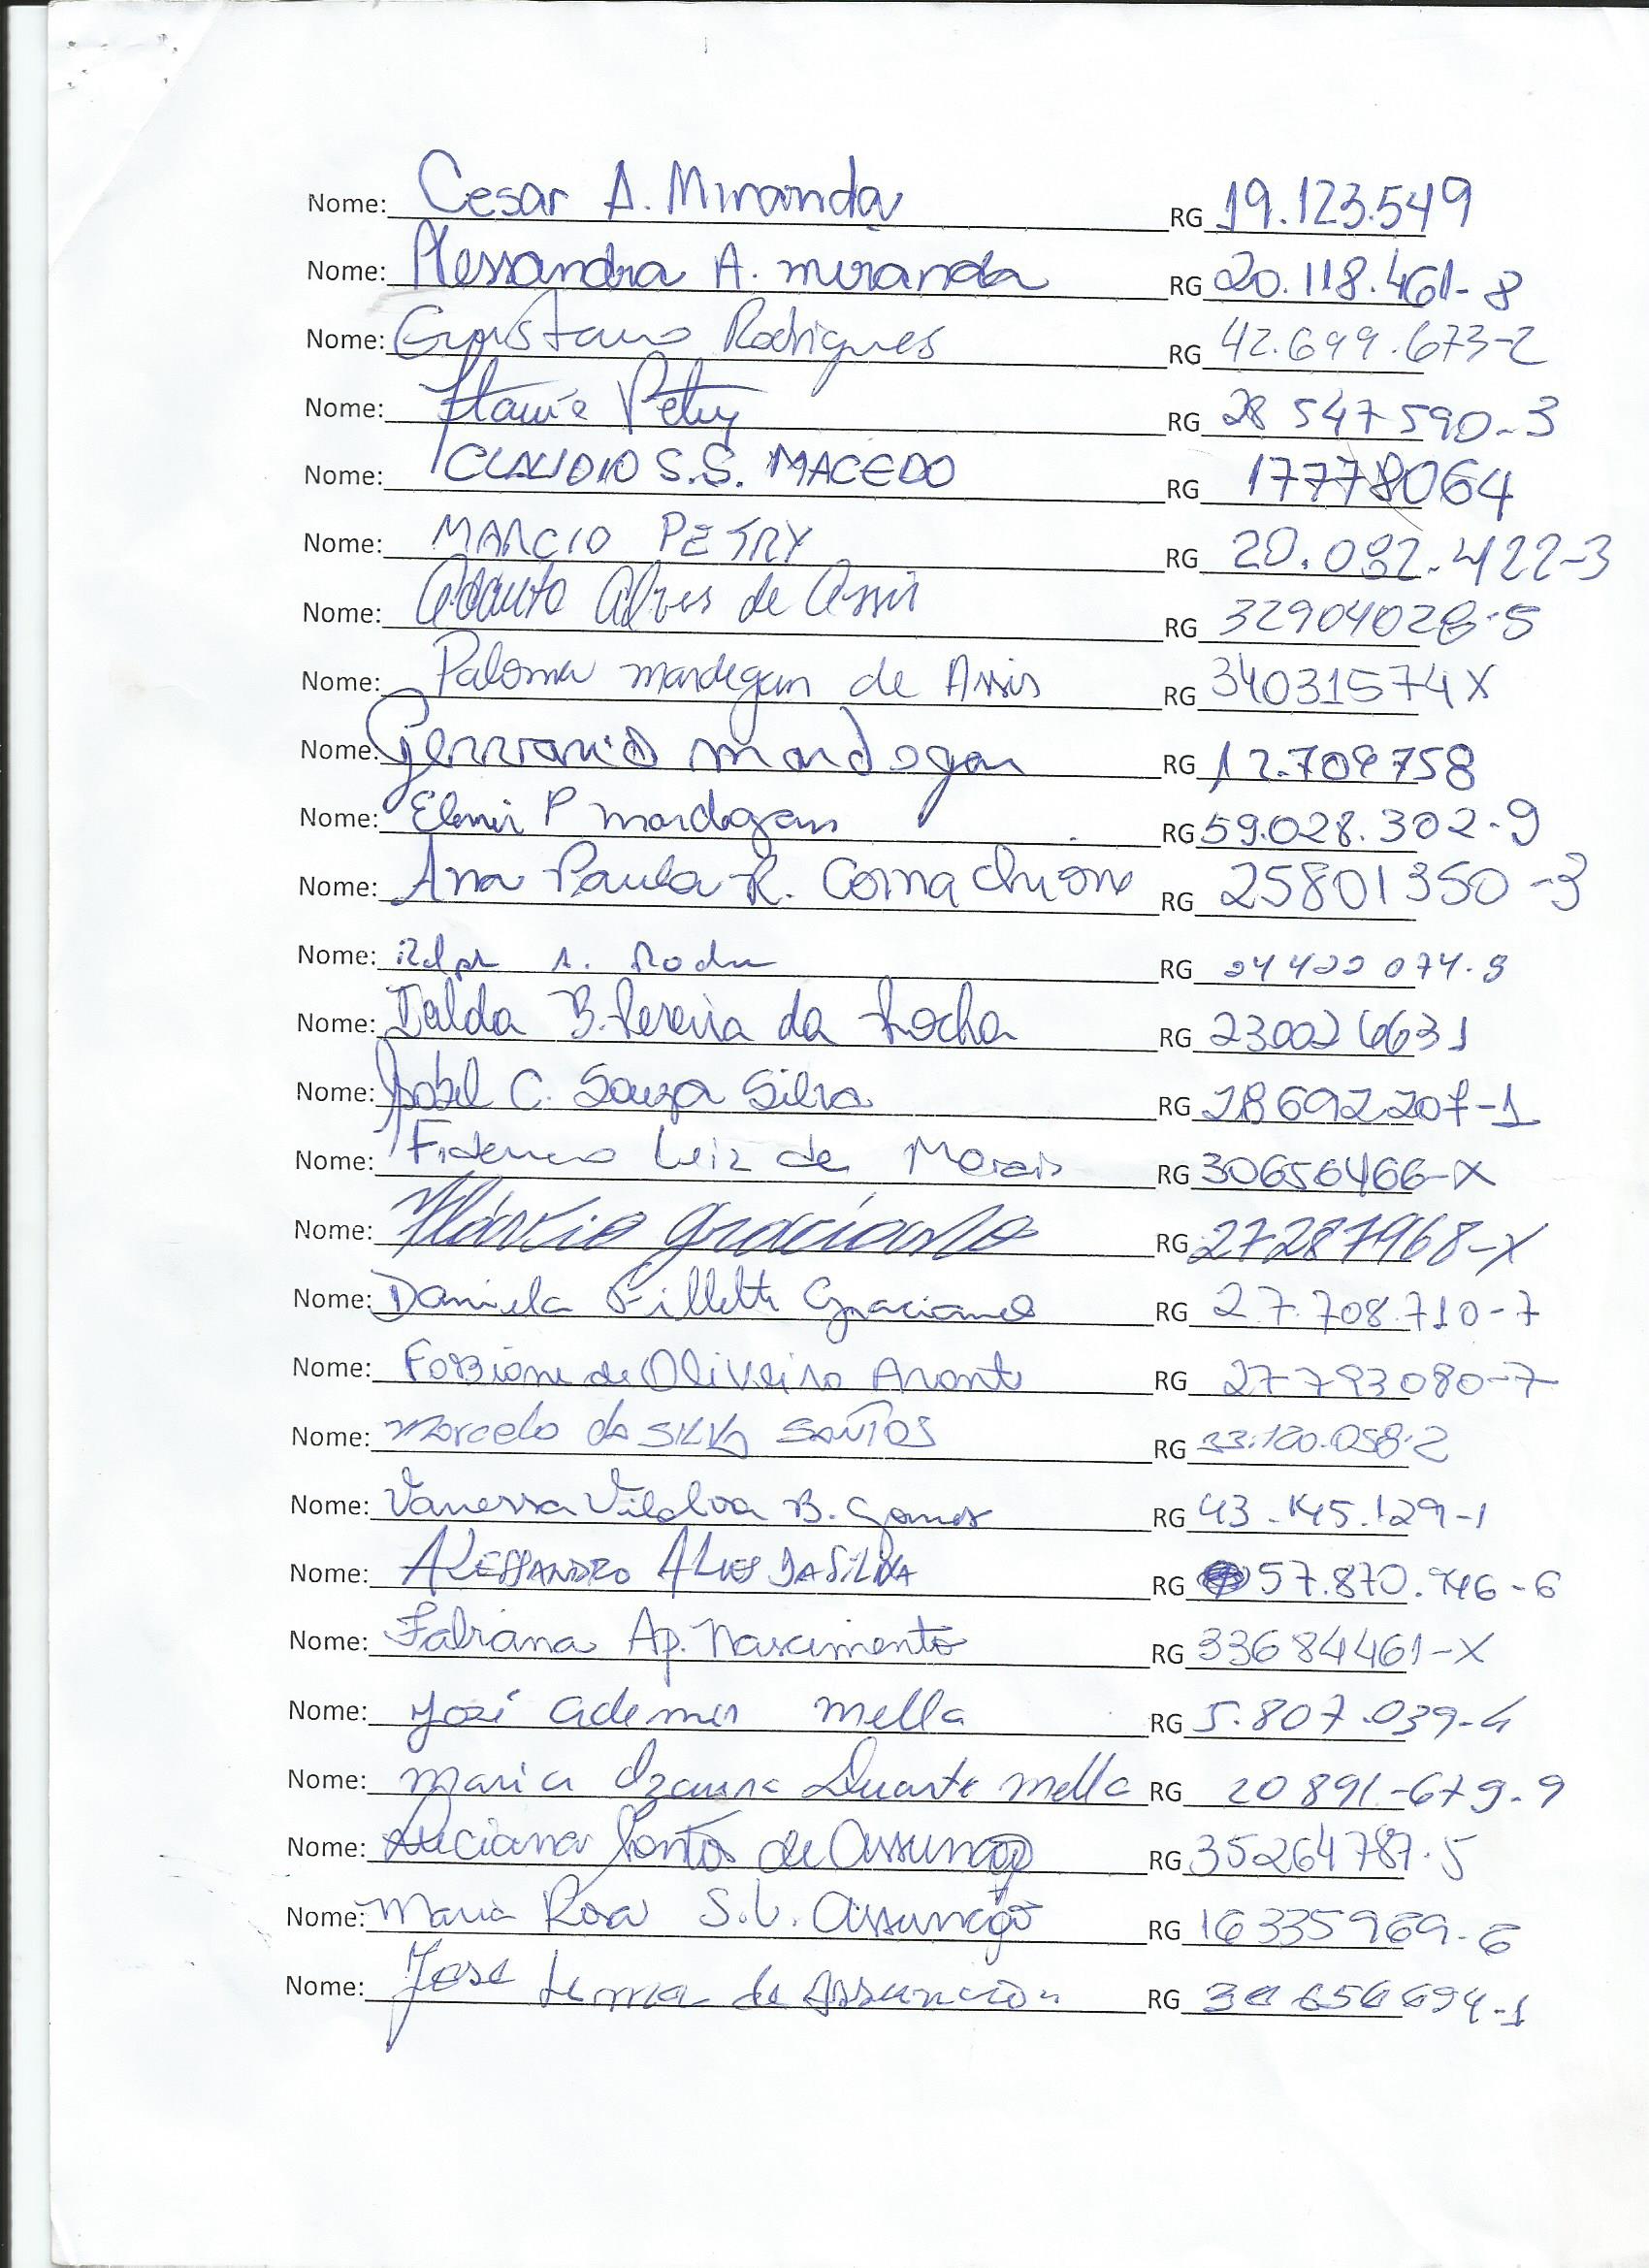 Nome: Cesar A. Miranda RG 19.123.549
Nome: Alessandra A. miranda RG 20.118.461-8
Nome: Gustavo Rodrigues RG 42.699.673-2
Nome: Petry RG 28 547 590-3
Nome: CLAUDIO S.S. MACEDO RG 17778064
Nome: MARCIO PETRY RG 20.092.422-3
Nome: Adauto Alves de Assis RG
Nome: Paloma mardegan de Assis RG 34031574X
Nome: mardegan RG 12.709758
Nome: P mardegan RG 59.028.302-9
Nome: Ana Paula R. Cornachione RG 25801350-3
Nome: A. RG
Nome: B. Pereira da Rocha RG
Nome: Isabel C. Souza Silva RG 28692207-1
Nome: Luiz de Morais RG 30656466-X
Nome: Flávio graciano RG 27287968-X
Nome: Daniela Filletti Graciano RG 27.708.710-7
Nome: de Oliveira RG 27793080-7
Nome: Marcelo da SILVA SANTOS RG 33.100.058-2
Nome: Vanessa B. Gomes RG 43.145.129-1
Nome: ALESSANDRO ALVES DA SILVA RG 57.870.946-6
Nome: Fabiana Ap. Nascimento RG 33684461-X
Nome: José Ademir mella RG 5.807.039-4
Nome: maria Izaura Duarte mella RG 20 891-679-9
Nome: Luciana Santos de Assunção RG 35264787-5
Nome: Maria Rosa S.L. Assunção RG 16335969-6
Nome: Jose de Assunción RG